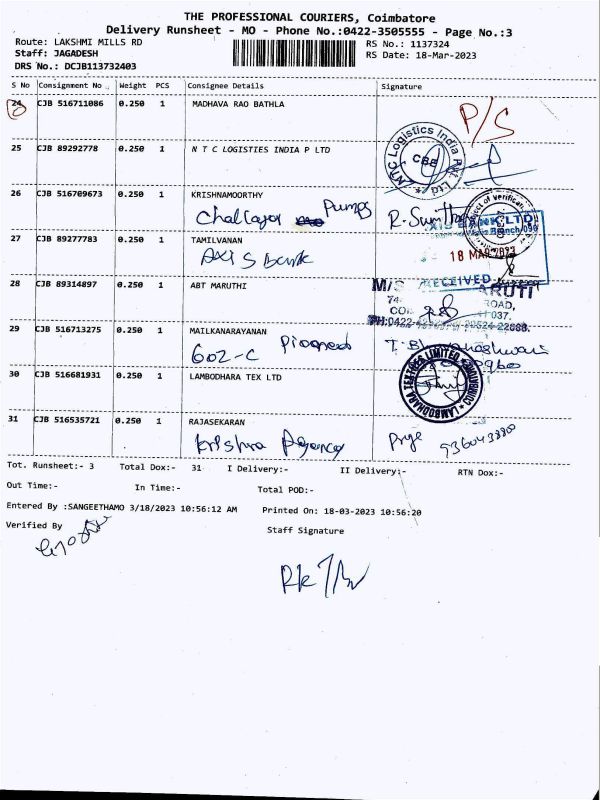 THE PROFESSIONAL COURIERS, Coimbatore
Delivery Runsheet - MO - Phone No.:0422-3505555 - Page No.:3
Route: LAKSHMI MILLS RD
Staff: JAGADESH
DRS No.: DCJB113732403
RS No.: 1137324
RS Date: 18-Mar-2023
S No Consignment No . Weight PCS Consignee Details Signature
24 CJB 516711086 0.250 1 MADHAVA RAO BATHLA P/S
25 CJB 89292778 0.250 1 N T C LOGISTIES INDIA P LTD
NTC Logistics India Pvt. Ltd
CBE
26 CJB 516709673 0.250 1 KRISHNAMOORTHY
Pumps
27 CJB 89277783 0.250 1 TAMILVANAN
AXIS Bank
18 MAR 2023
RECEIVED
28 CJB 89314897 0.250 1 ABT MARUTHI
M/S ARUTI
ROAD,
29 CJB 516713275 0.250 1 MAILKANARAYANAN
602-C
30 CJB 516681931 0.250 1 LAMBODHARA TEX LTD
LAMBODHARA TEXTILES LIMITED
31 CJB 516535721 0.250 1 RAJASEKARAN
Krishna Agency
Tot. Runsheet:- 3 Total Dox:- 31 I Delivery:- II Delivery:- RTN Dox:-
Out Time:- In Time:- Total POD:-
Entered By :SANGEETHAMO 3/18/2023 10:56:12 AM Printed On: 18-03-2023 10:56:20
Verified By Staff Signature